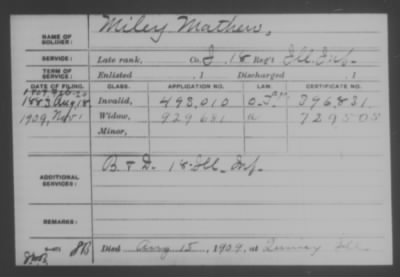 Miley Mathew.
NAME OF SOLDIER:
SERVICE: Late rank, Co. I, 18 Reg't Ill. Inf.
TERM OF SERVICE: Enlisted , 1 Discharged , 1
DATE OF FILING. CLASS. APPLICATION NO. CERTIFICATE NO.
1883, Aug 18 Invalid, 493,010 396,831
1909, Nov 1 Widow, 929,681 a 729,505
Minor,
ADDITIONAL SERVICES: B. & D. 18 Ill. Inf.
REMARKS:
Died Aug 15, 1909, at Quincy Ill